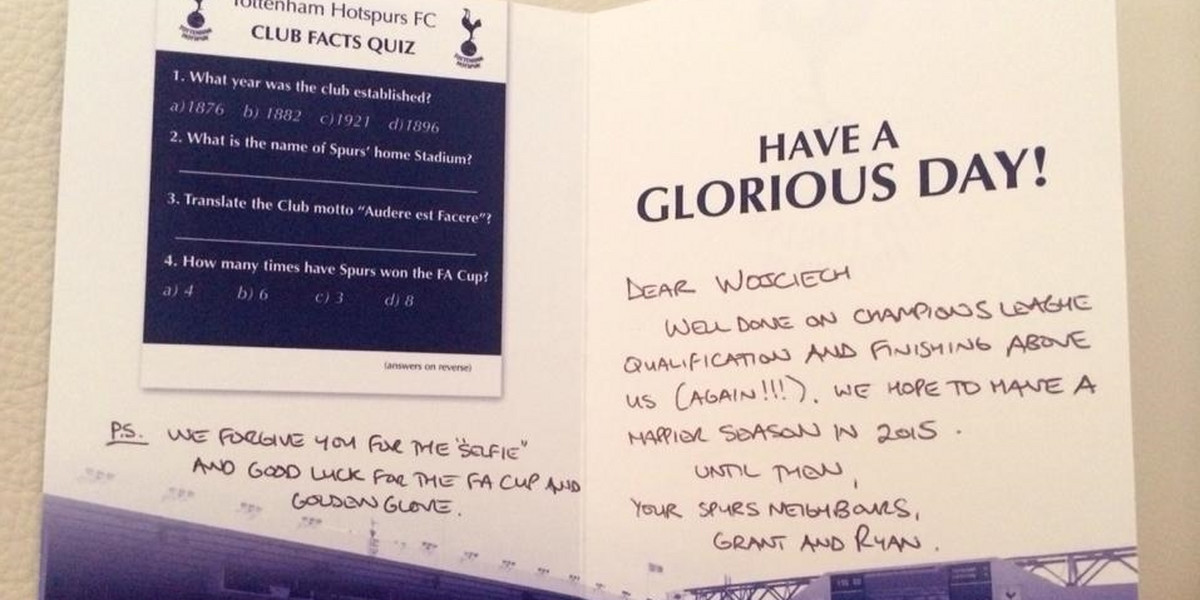 Tottenham Hotspurs FC
CLUB FACTS QUIZ
TOTTENHAM
HOTSPUR
TOTTENHAM
HOTSPUR
1. What year was the club established?
a) 1876 b) 1882 c) 1921 d) 1896
2. What is the name of Spurs' home Stadium?
3. Translate the Club motto "Audere est Facere"?
4. How many times have Spurs won the FA Cup?
a) 4 b) 6 c) 3 d) 8
(answers on reverse)
P.S. WE FORGIVE YOU FOR THE "SELFIE"
AND GOOD LUCK FOR THE FA CUP AND
GOLDEN GLOVE.
HAVE A
GLORIOUS DAY!
DEAR WOJCIECH
WELL DONE ON CHAMPIONS LEAGUE
QUALIFICATION AND FINISHING ABOVE
US (AGAIN!!!). WE HOPE TO HAVE A
HAPPIER SEASON IN 2015.
UNTIL THEN,
YOUR SPURS NEIGHBOURS,
GRANT AND RYAN.